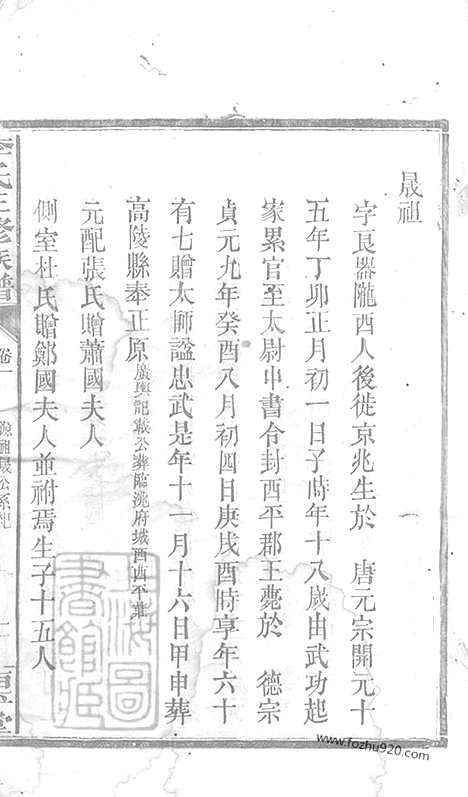 晟祖
字良器隴西人後徙京兆生於 唐元宗開元十
五年丁卯正月初一日子時年十八歲由武功起
家累官至太尉中書令封西平郡王薨於 德宗
貞元九年癸酉八月初四日庚戌酉時享年六十
有七贈太師諡忠武是年十一月十六日甲申葬
高陵縣奉正原廣輿記載公葬臨洮府城西西平莊
元配張氏贈蕭國夫人
側室杜氏贈鄭國夫人並祔焉生子十五人
李氏三修族譜
卷一
上海圖書館藏
www.fozhu920.com